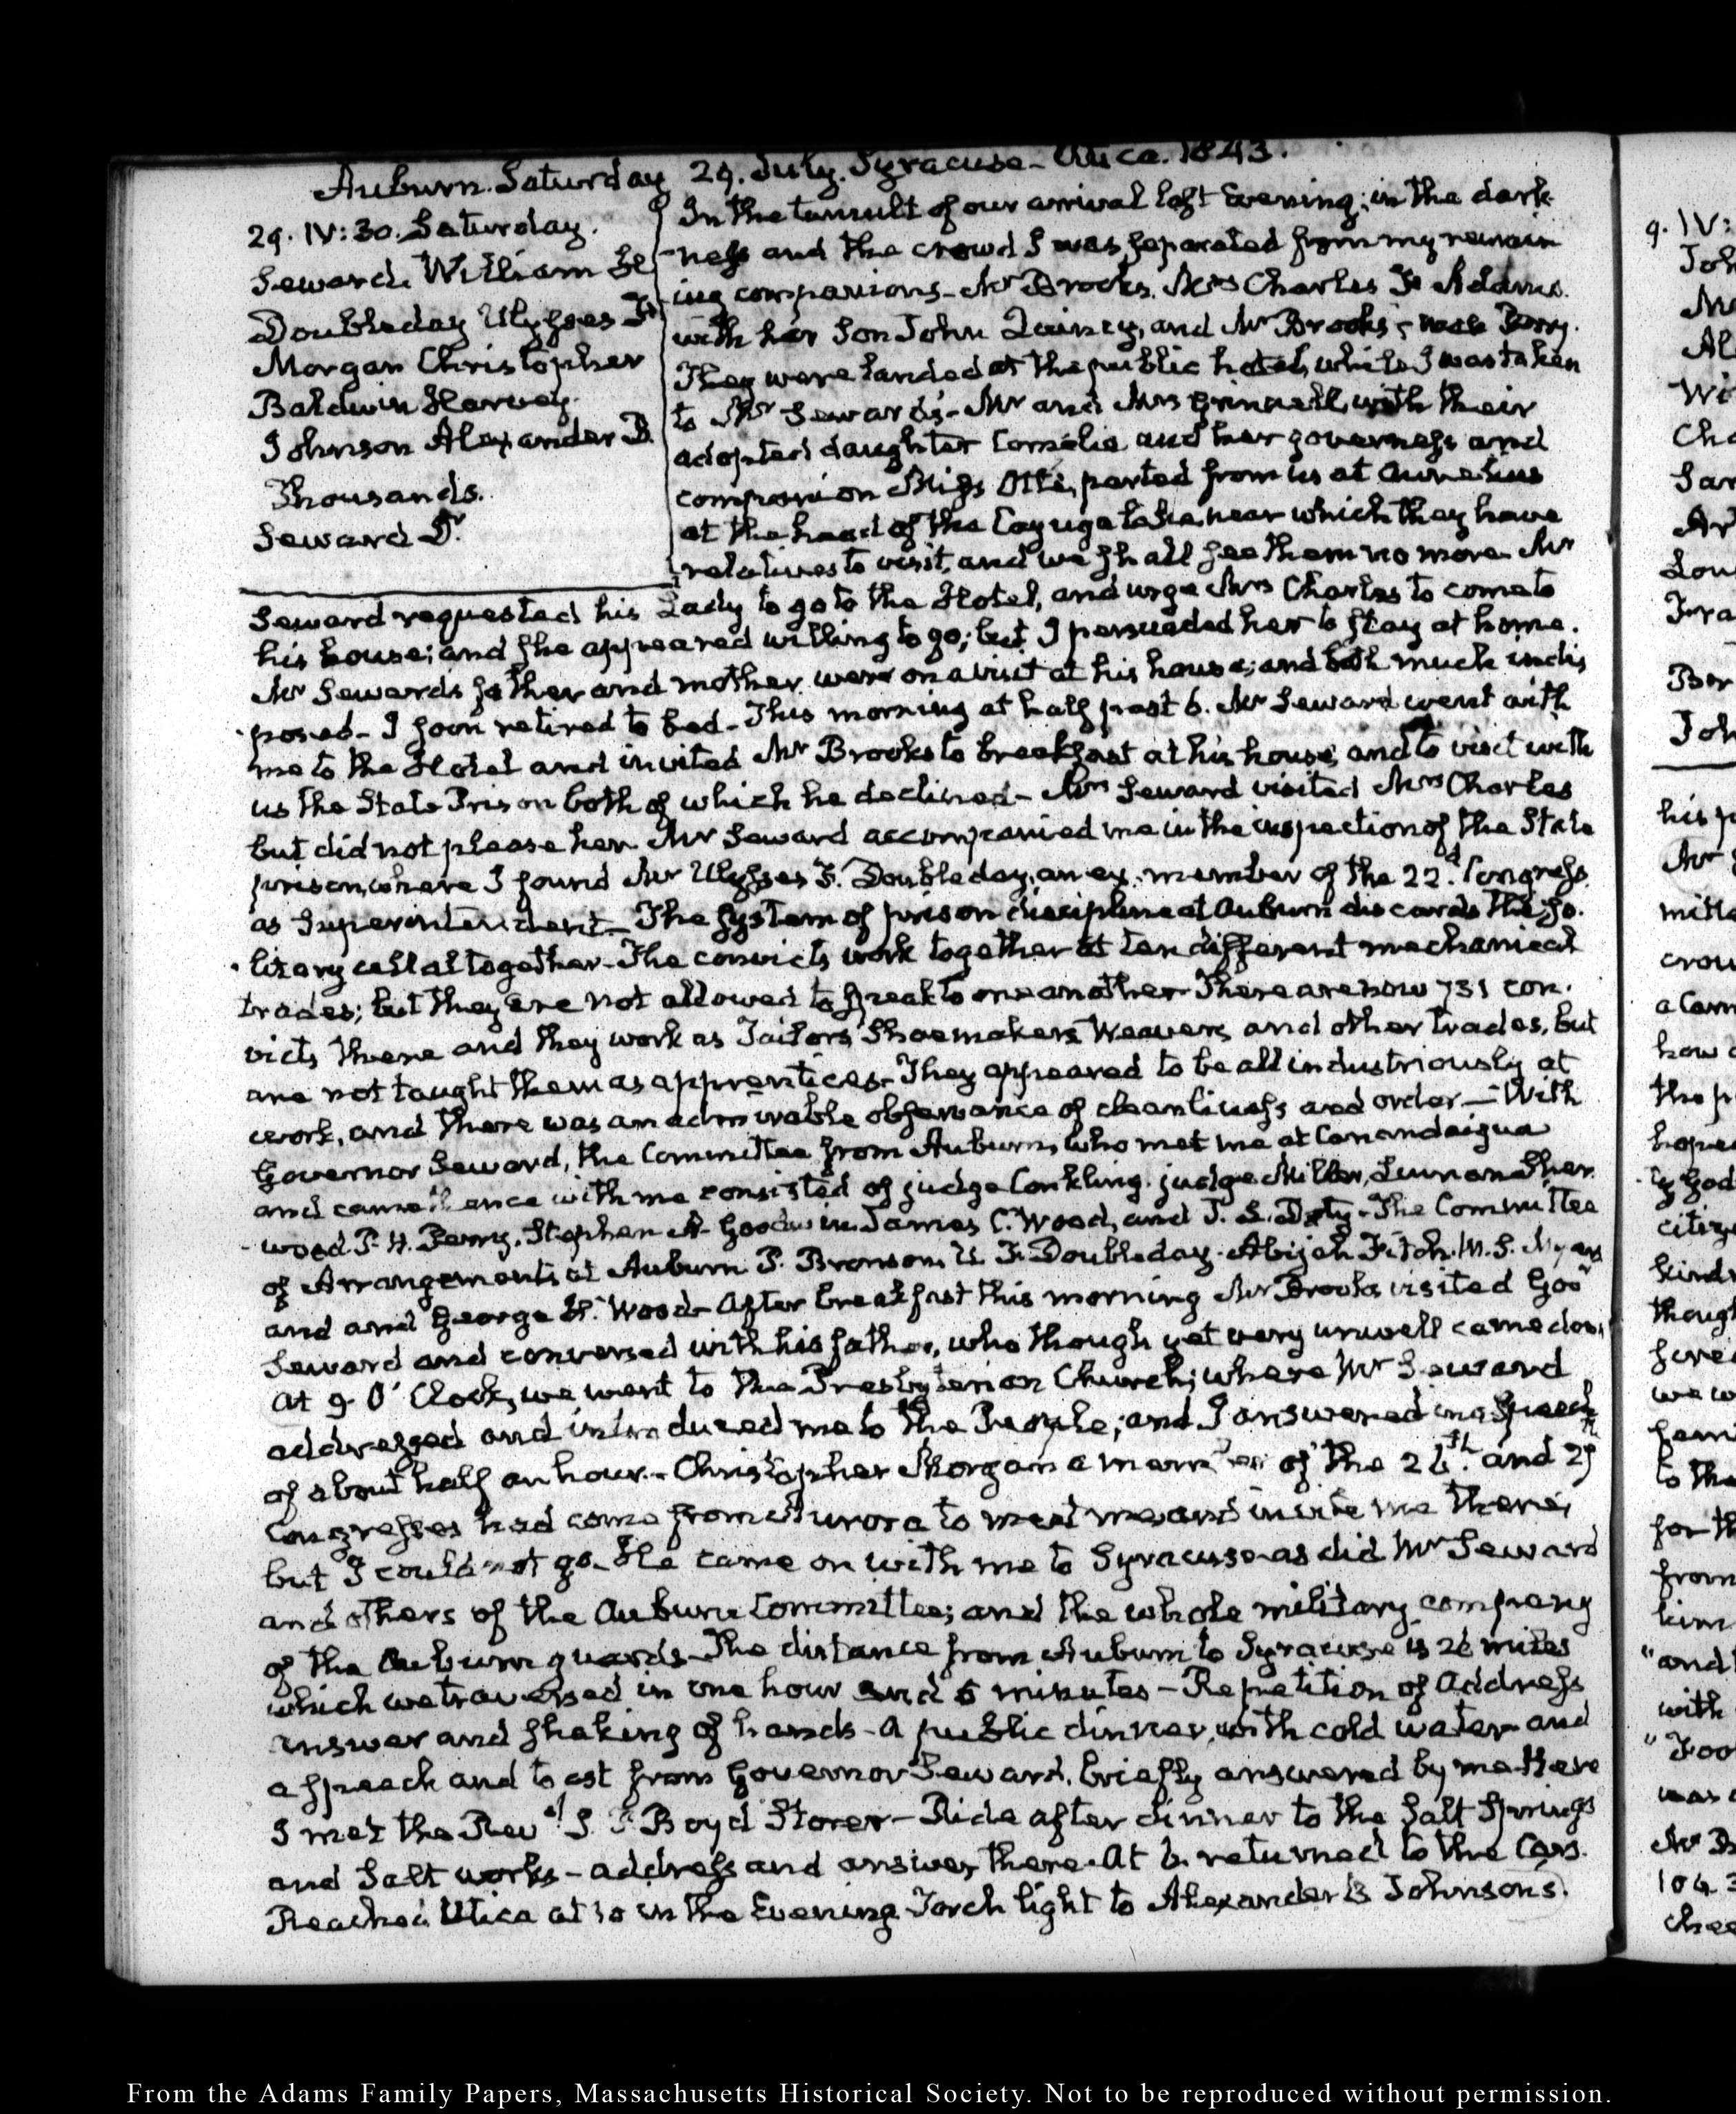 Auburn. Saturday 29. July. Syracuse - Utica. 1843.
29. IV:30. Saturday.
Seward. William H
Doubleday Ulysses F.
Morgan Christopher
Baldwin Harvey.
Johnson Alexander B.
Thousands.
Seward Dr
In the tumult of our arrival last Evening; in the dark-
ness and the crowd I was separated from my remain
ing companions - Mr Brooks, Mrs Charles F. Adams.
with her Son John Quincy, and Mr Brooks's
They were landed at the public hotel, while I was taken
to Mr Seward's - Mr and Mrs Grinnell, with their
adopted daughter Cornelia and her governess and
companion Miss Otté, parted from us at Aurelius
at the head of the Cayuga Lake, near which they have
relatives to visit, and we shall see them no more. Mr
Seward requested his Lady to go to the Hotel, and urge Mrs Charles to come to
his house; and she appeared willing to go; but I persuaded her to stay at home.
Mr Sewards father and mother were on a visit at his house; and both much indis
posed - I soon retired to bed - This morning at half past 6. Mr Seward went with
me to the Hotel and invited Mr Brooks to breakfast at his house, and to visit with
us the State Prison both of which he declined - Mrs Seward visited Mrs Charles
but did not please her. Mr Seward accompanied me in the inspection of the State
prison, where I found Mr Ulysses F. Doubleday, an ex-member of the 22.d Congress.
as Superintendent - The system of prison discipline at Auburn discards the so-
litary cell altogether - The convicts work together at ten different mechanical
trades; but they are not allowed to speak to one another - There are now 731 con-
victs there and they work as Tailors Shoemakers Weavers and other trades, but
are not taught them as apprentices - They appeared to be all industriously at
work, and there was an admirable observance of cleanliness and order - With
Governor Seward, the Committee from Auburn, who met me at Canandaigua
and came thence with me consisted of judge Conkling. judge Miller, Luman Sher-
wood. P. H. Perry. Stephen A. Goodwin. James C. Wood, and J. S. Doty - The Committee
of Arrangements at Auburn P. Bronson, U. F. Doubleday. Abijah Fitch. M. S. Myers
and and George H. Wood - After breakfast this morning Mr Brooks visited Gov
Seward and conversed with his father, who though yet very unwell came down
At 9 O'Clock, we went to the Presbyterian Church; where Mr Seward
addressed and introduced me to the People; and I answered in a Speech
of about half an hour - Christopher Morgan a member of the 26th and 27
Congresses had come from Aurora to meet me and invite me there;
but I could not go - He came on with me to Syracuse as did Mr Seward
and others of the Auburn Committee; and the whole military company
of the Auburn guards - The distance from Auburn to Syracuse is 26 miles
which we traversed in one hour and 5 minutes - Repetition of Address
answer and shaking of hands - A public dinner, with cold water and
a speech and toast from Governor Seward, briefly answered by me - Here
I met the Revd J. P. Boyd Storer - Ride after dinner to the Salt Springs
and Salt works - address and answer there. At 6. returned to the Cars.
Reached Utica at 10 in the Evening Torch light to Alexander B Johnson's.
From the Adams Family Papers, Massachusetts Historical Society. Not to be reproduced without permission.